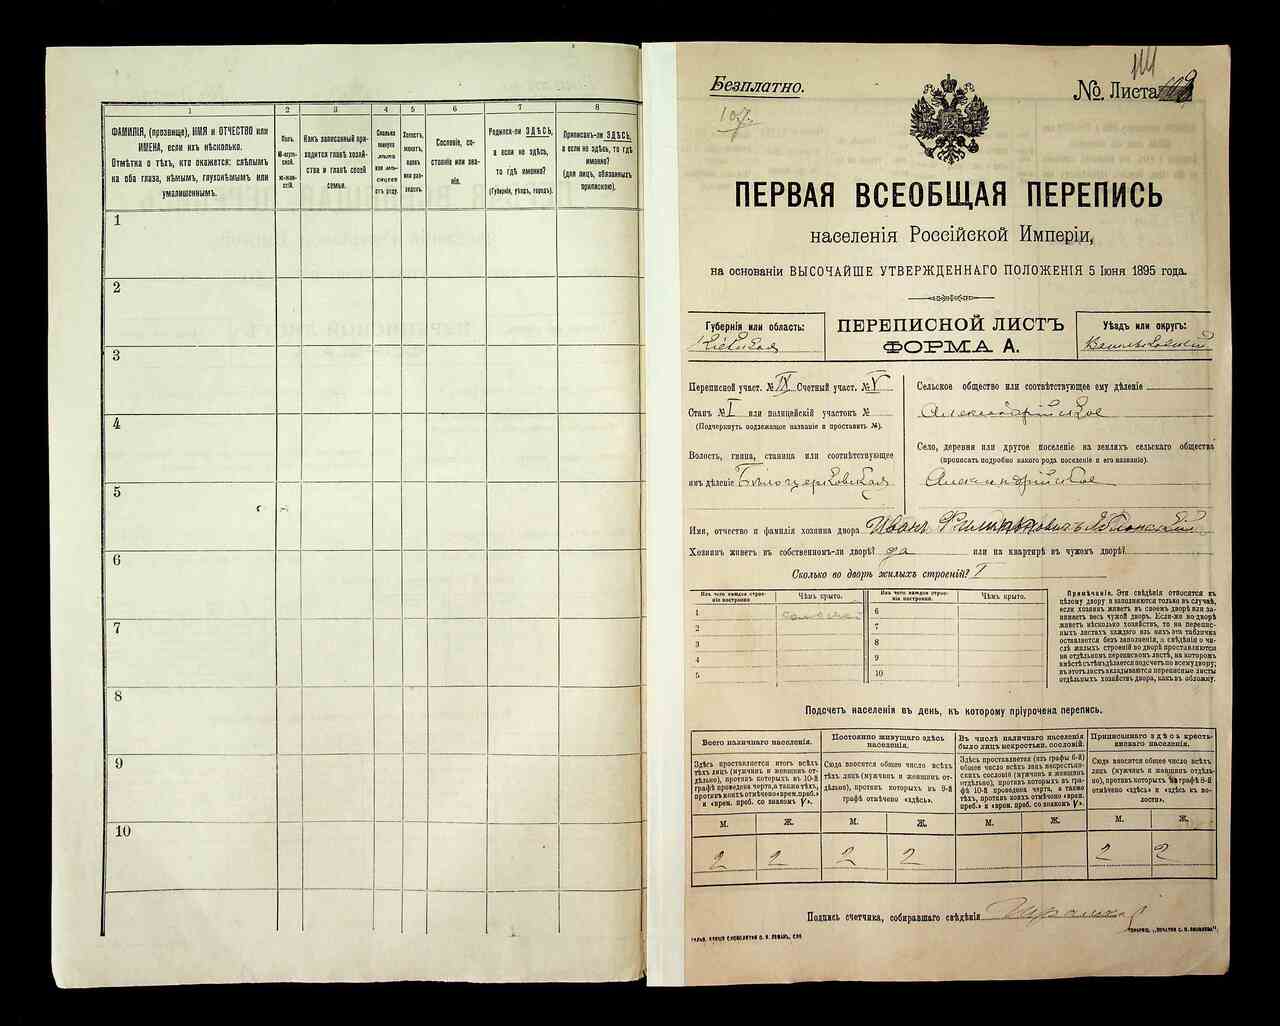 1
2
3
4
5
6
7
8
ФАМИЛІЯ, (прозвище), ИМЯ и ОТЧЕСТВО или
ИМЕНА, если ихъ нѣсколько.
Отмѣтка о тѣхъ, кто окажется: слѣпымъ
на оба глаза, нѣмымъ, глухонѣмымъ или
умалишеннымъ.
Полъ.
М-муж-
ской.
Ж-жен-
скій.
Какъ записанный при-
ходится главѣ хозяй-
ства и главѣ своей
семьи.
Сколько
минуло
лѣтъ
или мѣ-
сяцевъ
отъ роду.
Холостъ,
женатъ,
вдовъ
или раз-
веденъ.
Сословіе, со-
стояніе или зва-
ніе.
Родился-ли ЗДѢСЬ,
а если не здѣсь,
то гдѣ именно?
(Губернія, уѣздъ, городъ).
Приписанъ-ли ЗДѢСЬ,
а если не здѣсь, то гдѣ
именно?
(для лицъ, обязанныхъ
припискою).
1
2
3
4
5
6
7
8
9
10
Безплатно.
111
№ Листа
107
ПЕРВАЯ ВСЕОБЩАЯ ПЕРЕПИСЬ
населенія Россійской Имперіи,
на основаніи ВЫСОЧАЙШЕ УТВЕРЖДЕННАГО ПОЛОЖЕНІЯ 5 Іюня 1895 года.
Губернія или область:
Кіевская
ПЕРЕПИСНОЙ ЛИСТЪ
ФОРМА А.
Уѣздъ или округъ:
Васильковскій
Переписной участ. № IX Счетный участ. № V
Станъ № I или полицейскій участокъ №
(Подчеркнуть подлежащее названіе и проставить №).
Волость, гмина, станица или соотвѣтствующее
имъ дѣленіе Бѣлоцерковская
Сельское общество или соотвѣтствующее ему дѣленіе
Александрійское
Село, деревня или другое поселеніе на земляхъ сельскаго общества
(прописать подробно какого рода поселеніе и его названіе).
Александрійское
Имя, отчество и фамилія хозяина двора Иванъ
Хозяинъ живетъ въ собственномъ-ли дворѣ? да или на квартирѣ въ чужомъ дворѣ?
Сколько во дворѣ жилыхъ строеній? I
Изъ чего каждое строе-
ніе построено.
Чѣмъ крыто.
Изъ чего каждое строе-
ніе построено.
Чѣмъ крыто.
1 соломой 6
2 7
3 8
4 9
5 10
Примѣчаніе. Эти свѣдѣнія относятся къ
цѣлому двору и заполняются только въ случаѣ,
если хозяинъ живетъ въ своемъ дворѣ или за-
нимаетъ весь чужой дворъ. Если-же во дворѣ
живетъ нѣсколько хозяйствъ, то на перепис-
ныхъ листахъ каждаго изъ нихъ эта табличка
оставляется безъ заполненія, а свѣдѣнія о чи-
слѣ жилыхъ строеній во дворѣ проставляются
на отдѣльномъ переписномъ листѣ, на которомъ
вмѣстѣ съ тѣмъ дѣлается подсчетъ по всему двору;
въ этотъ листъ вкладываются переписные листы
отдѣльныхъ хозяйствъ двора, какъ въ обложку.
Подсчетъ населенія въ день, къ которому пріурочена перепись.
Всего наличнаго населенія.
Постоянно живущаго здѣсь
населенія.
Въ числѣ наличнаго населенія
было лицъ некрестьян. сословій.
Приписаннаго здѣсь кресть-
янскаго населенія.
Здѣсь проставляется итогъ всѣхъ
тѣхъ лицъ (мужчинъ и женщинъ от-
дѣльно), противъ которыхъ въ 10-й
графѣ проведена черта, а также тѣхъ,
противъ коихъ отмѣчено «врем. преб.»
и «врем. преб. со знакомъ V».
Сюда вносятся общее число всѣхъ
тѣхъ лицъ (мужчинъ и женщинъ от-
дѣльно), противъ которыхъ въ 9-й
графѣ отмѣчено «здѣсь».
Здѣсь проставляется (изъ графы 6-й)
общее число всѣхъ лицъ некрестьян-
скихъ сословій (мужчинъ и женщинъ
отдѣльно), противъ которыхъ въ гра-
фѣ 10-й проведена черта, а также
тѣхъ, противъ коихъ отмѣчено «врем.
преб.» и «врем. преб. со знакомъ V».
Сюда вносятся общее число всѣхъ
лицъ (мужчинъ и женщинъ отдѣль-
но), противъ которыхъ въ графѣ 8-й
отмѣчено «здѣсь» и «здѣсь къ во-
лости».
М. Ж. М. Ж. М. Ж. М. Ж.
2 2 2 2 2 2
Подпись счетчика, собиравшаго свѣдѣнія